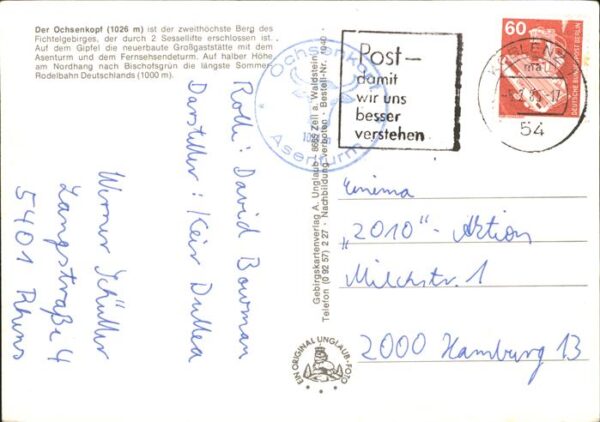 Der Ochsenkopf (1026 m) ist der zweithöchste Berg des
Fichtelgebirges, der durch 2 Sessellifte erschlossen ist.
Auf dem Gipfel die neuerbaute Großgaststätte mit dem
Asenturm und dem Fernsehsendeturm. Auf halber Höhe
am Nordhang nach Bischofsgrün die längste Sommer-
Rodelbahn Deutschlands (1000 m).
Rolle: David Bowman
Darsteller: Keir Dullea
Werner Schüller
Langstraße 4
5401 Rhens
Ochsenkopf
Asenturm
Gebirgskartenverlag A. Unglaub · 8665 Zell a. Waldstein
Telefon (0 92 57) 2 27 · Nachbildung verboten · Bestell-Nr. 1040
EIN ORIGINAL UNGLAUB-FOTO
Post—
damit
wir uns
besser
verstehen
KOBLENZ
54
60
DEUTSCHE BUNDESPOST BERLIN
Cinema
„2010"-Aktion
Milchstr. 1
2000 Hamburg 13